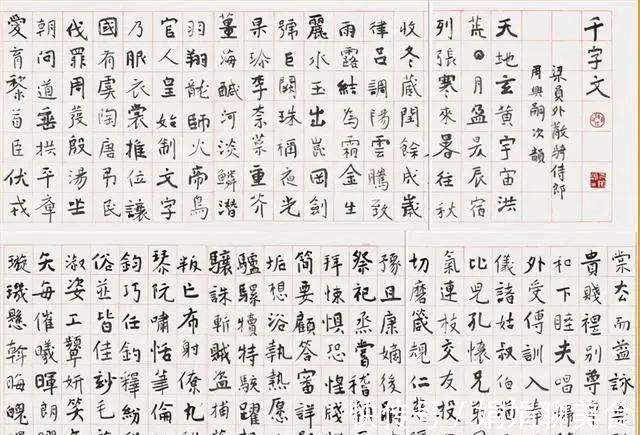 千字文
梁員外散騎侍郎
周興嗣次韻
天地玄黃宇宙洪
荒日月盈昃辰宿
列張寒來暑往秋
收冬藏閏餘成歲
律呂調陽雲騰致
雨露結為霜金生
麗水玉出崑岡劍
號巨闕珠稱夜光
果珍李柰菜重芥
薑海鹹河淡鱗潛
羽翔龍師火帝鳥
官人皇始制文字
乃服衣裳推位讓
國有虞陶唐弔民
伐罪周發殷湯坐
朝問道垂拱平章
愛育黎首臣伏戎
棠去而益詠
貴賤禮別尊
和下睦夫唱
外受傅訓入奉
儀諸姑叔伯
比兒孔懷兄
氣連枝交友投
切磨箴規仁
豫且康嫡後
祭祀烝嘗稽
拜悚懼恐惶牋
簡要顧答審詳
垢想浴執熱願
驢騾犢特駭躍
驤誅斬賊盜捕
叛亡布射僚丸
琴阮嘯恬筆倫
鈞巧任釣釋紛
俗並皆佳妙毛
淑姿工顰妍笑
矢每催曦暉朗
璇璣懸斡晦魄
快传号/娟娟聊美食